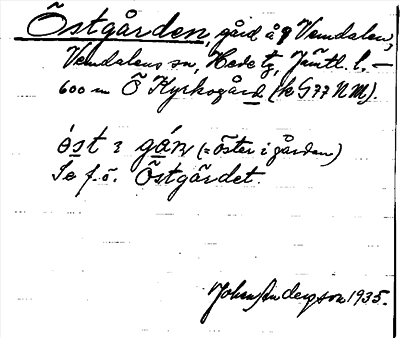 Östgården, gård å Vemdalen,
Vemdalens sn, Hede tg, Jämtl. l. –
600 m Ö Kyrkogård (k G77 N M).
óst i gán (= öster i gården)
Se f. ö. Östgärdet.
John Anderzson 1935.